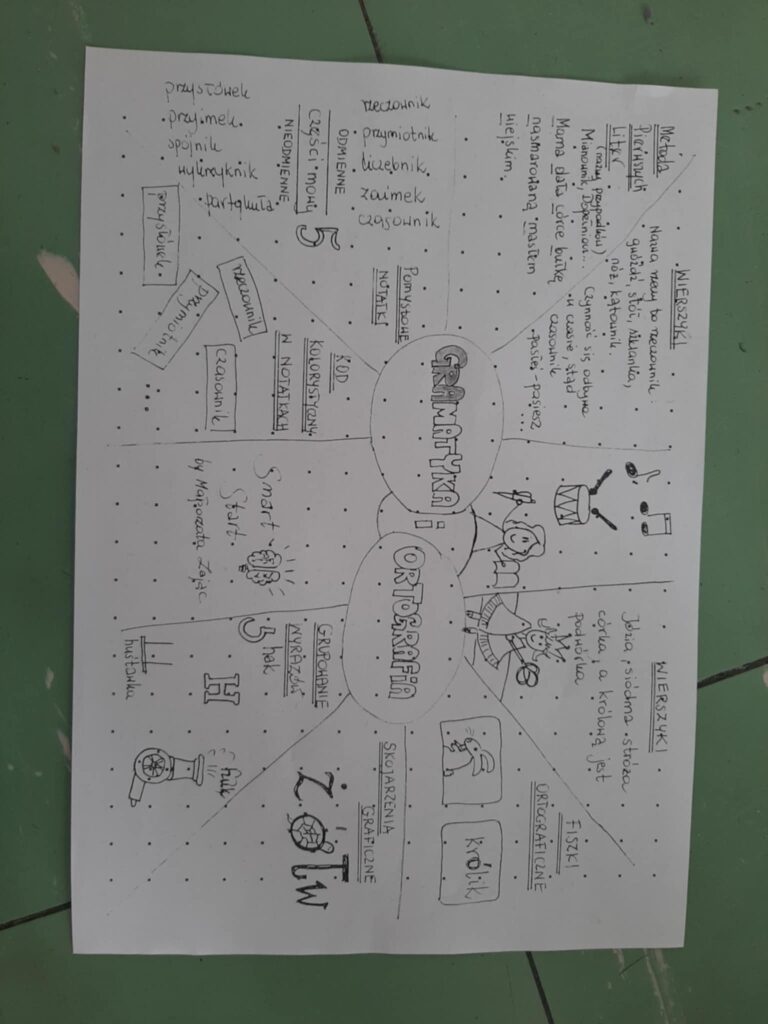 Metoda
Pierwszych
Liter
(nazwy przypadków)
Mianownik, Dopełniacz...
Mama dała córce bułkę
nasmarowaną masłem
wiejskim.
WIERSZYKI
Nazwa rzeczy to rzeczownik
gwóźdź, stół, szklanka,
nóż, kątownik.
Czynność się odbywa
w czasie, stąd
czasownik
pasiesz
...
rzeczownik
przymiotnik
liczebnik
zaimek
czasownik
ODMIENNE
CZĘŚCI MOWY
NIEODMIENNE
5
przysłówek
przyimek
spójnik
wykrzyknik
partykuła
POMYSŁOWE
NOTATKI
KOD
KOLORYSTYCZNY
W NOTATKACH
rzeczownik
czasownik
przymiotnik
przysłówek
...
GRAMATYKA
i
ORTOGRAFIA
Smart
Start
by Małgorzata Zając
WIERSZYKI
Józia, siódma stróża
córka, a królową jest
podwórka
FISZKI
ORTOGRAFICZNE
królik
SKOJARZENIA
GRAFICZNE
ŻÓŁW
GRUPOWANIE
WYRAZÓW
hak
H
huśtawka
huk